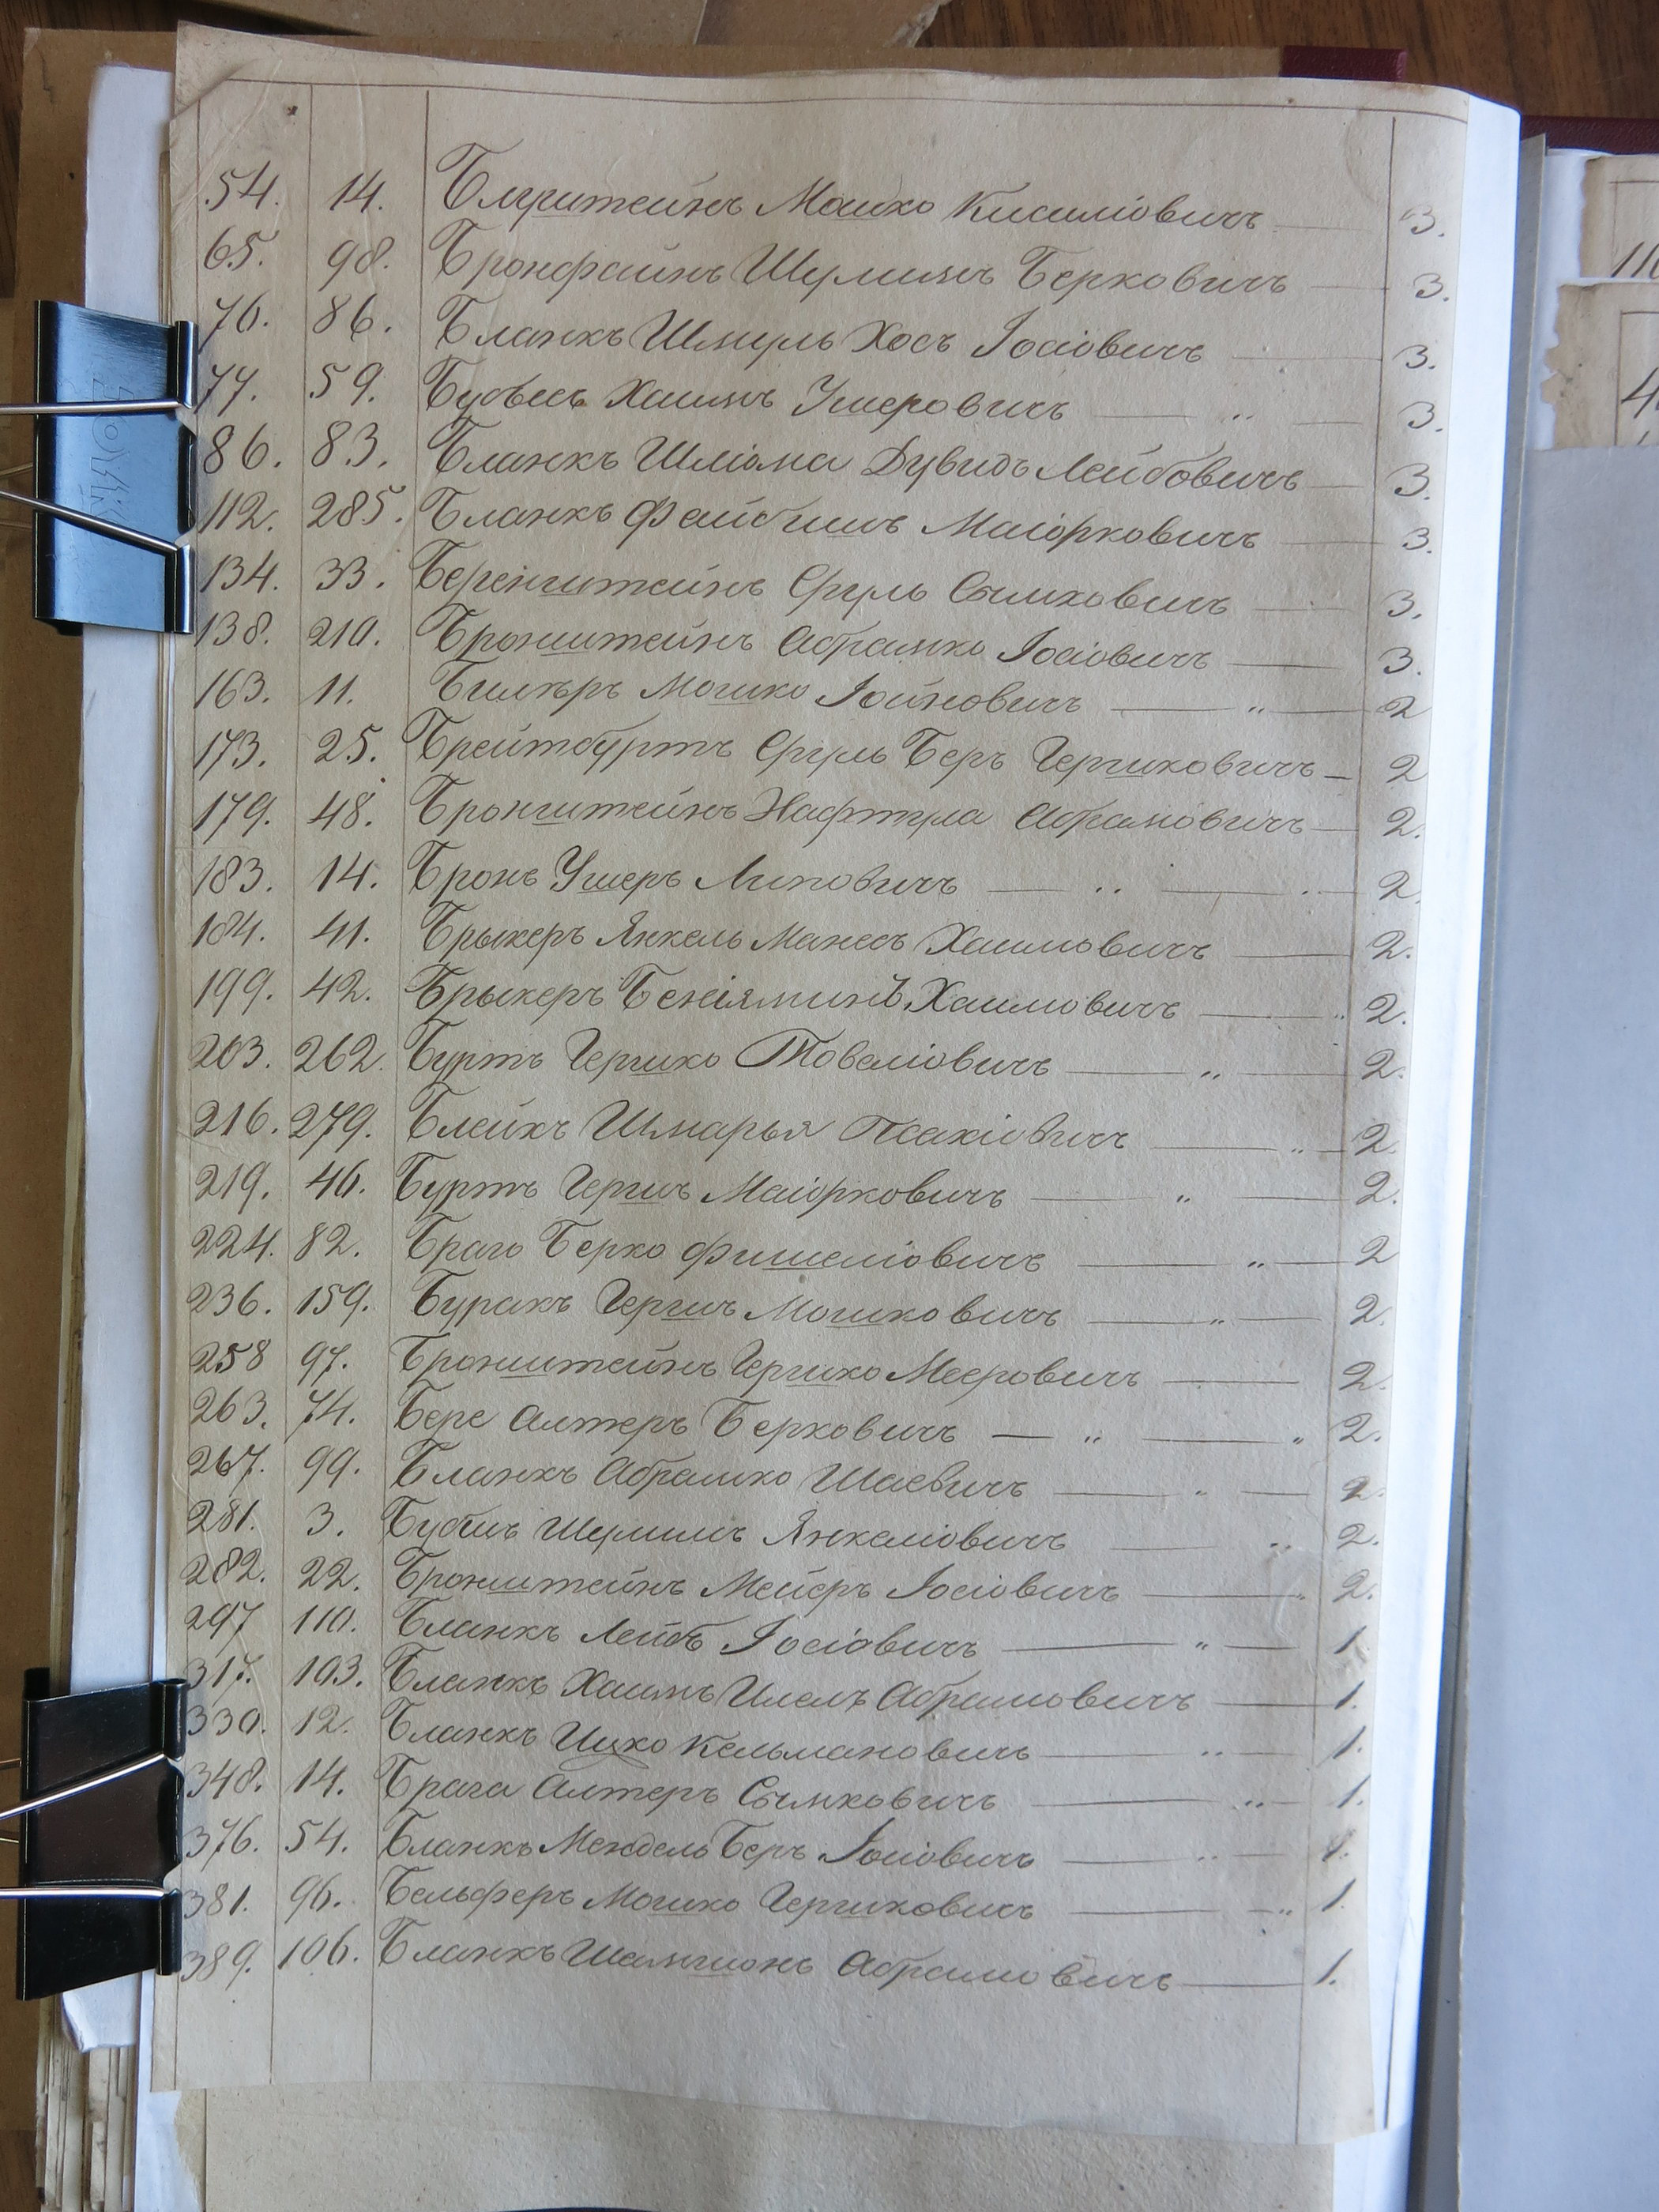 54. 14. Блуштейнъ Мошко Кисиліовичъ 3.
65. 98. Бронфайнъ Шулимъ Берковичъ 3.
76. 86. Бланкъ Шмуль Хосъ Іосіовичъ 3.
77. 59. Бубесъ Хаимъ Ушеровичъ „ 3.
86. 83. Бланкъ Шліома Дувидъ Лейбовичъ 3.
112. 285. Бланкъ Файбишъ Маіорковичъ 3.
134. 33. Беренштейнъ Сруль Сымховичъ 3.
138. 210. Бронштейнъ Абрамко Іосіовичъ 3.
163. 11. Мошко Іойновичъ „ 2
173. 25. Брейтбуртъ Сруль Беръ Гершковичъ 2
179. 48. Бронштейнъ Нафтула Абрамовичъ 2.
183. 14. Бронъ Ушеръ Липовичъ „ „ 2.
184. 41. Брыкеръ Янкель Манесъ Хаимовичъ 2.
199. 42. Брыкеръ Беніяминъ Хаимовичъ „ 2.
203. 262. Буртъ Гершко Товеліовичъ „ 2.
216. 279. Блейкъ Шмарья Псахіовичъ „ 2.
219. 46. Буртъ Гершъ Маіорковичъ „ 2.
224. 82. Браго Берко Фишеліовичъ „ 2
236. 159. Буракъ Гершъ Мошковичъ „ 2.
258 97. Бронштейнъ Гершко Мееровичъ 2.
263. 74. Бере Алтеръ Берковичъ „ „ 2.
267. 99. Бланкъ Абрамко Шаевичъ „ 2.
281. 3. Бубисъ Шулимъ Янкеліовичъ „ 2.
282. 22. Бронштейнъ Мейеръ Іосіовичъ „ 2.
297 110. Бланкъ Лейбъ Іосіовичъ „ 1.
317. 103. Бланкъ Хаимъ Абрамовичъ 1.
330. 12. Бланкъ Ицко Кельмановичъ „ 1.
348. 14. Брага Алтеръ Сымховичъ „ 1.
376. 54. Бланкъ Мендель Беръ Іосіовичъ „ 1.
381. 96. Бельферъ Мошко Гершковичъ „ 1.
389. 106. Бланкъ Шамшонъ Абрамовичъ 1.